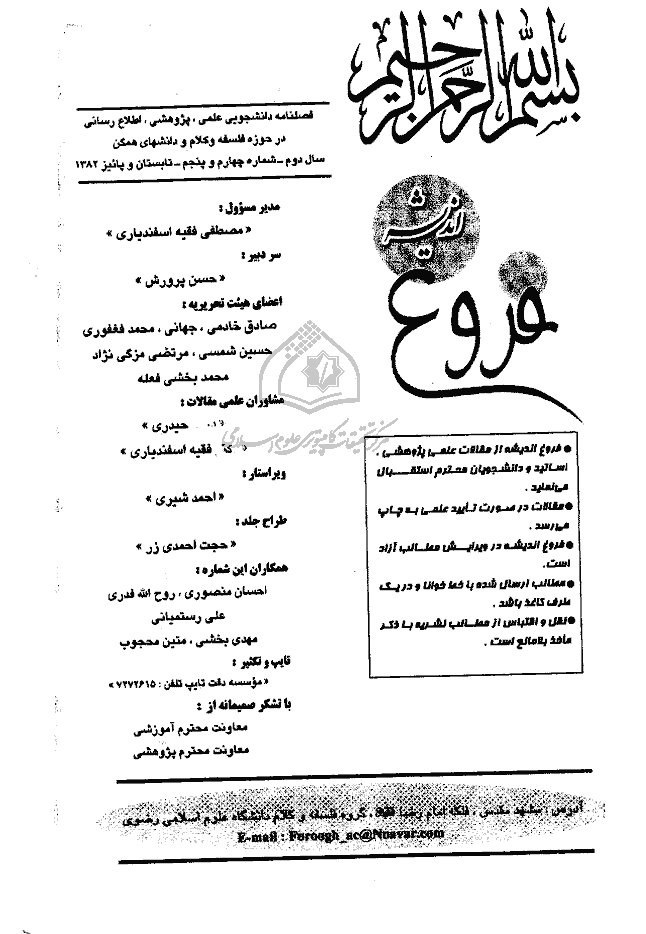 بسم الله الرحمن الرحیم
فصلنامه دانشجویی علمی ، پژوهشی ، اطلاع رسانی
در حوزه فلسفه وکلام و دانشهای همگن
سال دوم – شماره چهارم و پنجم – تابستان و پائیز ۱۳۸۲
فروغ اندیشه
مدیر مسؤول :
« مصطفی فقیه اسفندیاری »
سر دبیر :
« حسن پرورش »
اعضای هیئت تحریریه :
صادق خادمی ، جهانی ، محمد فغفوری
حسین شمسی ، مرتضی مزگی نژاد
محمد بخشی فعله
مشاوران علمی مقالات :
حیدری »
فقیه اسفندیاری »
ویراستار :
« احمد شیری »
طراح جلد :
« حجت احمدی زر »
همکاران این شماره :
احسان منصوری ، روح الله قدری
علی رستمیانی
مهدی بخشی ، متین محجوب
تایپ و تکثیر :
« مؤسسه دقت تایپ تلفن : ۷۲۷۲۶۱۵ »
با تشکر صمیمانه از :
معاونت محترم آموزشی
معاونت محترم پژوهشی
مرکز تحقیقات کامپیوتری علوم اسلامی
● فروغ اندیشه از مقالات علمی پژوهشی ،
اساتید و دانشجویان محترم استقبال
می‌نماید .
● مقالات در صورت تأیید علمی به چاپ
می‌رسد .
● فروغ اندیشه در ویرایش مطالب آزاد
است.
● مطالب ارسال شده با خط خوانا و در یک
طرف کاغذ باشد .
● نقل و اقتباس از مطالب نشریه با ذکر
مأخذ بلامانع است .
آدرس : مشهد مقدس ، فلکه امام رضا ، گروه فلسفه و کلام دانشگاه علوم اسلامی رضوی
E-mail : Foroogh_ac@Noavar.com